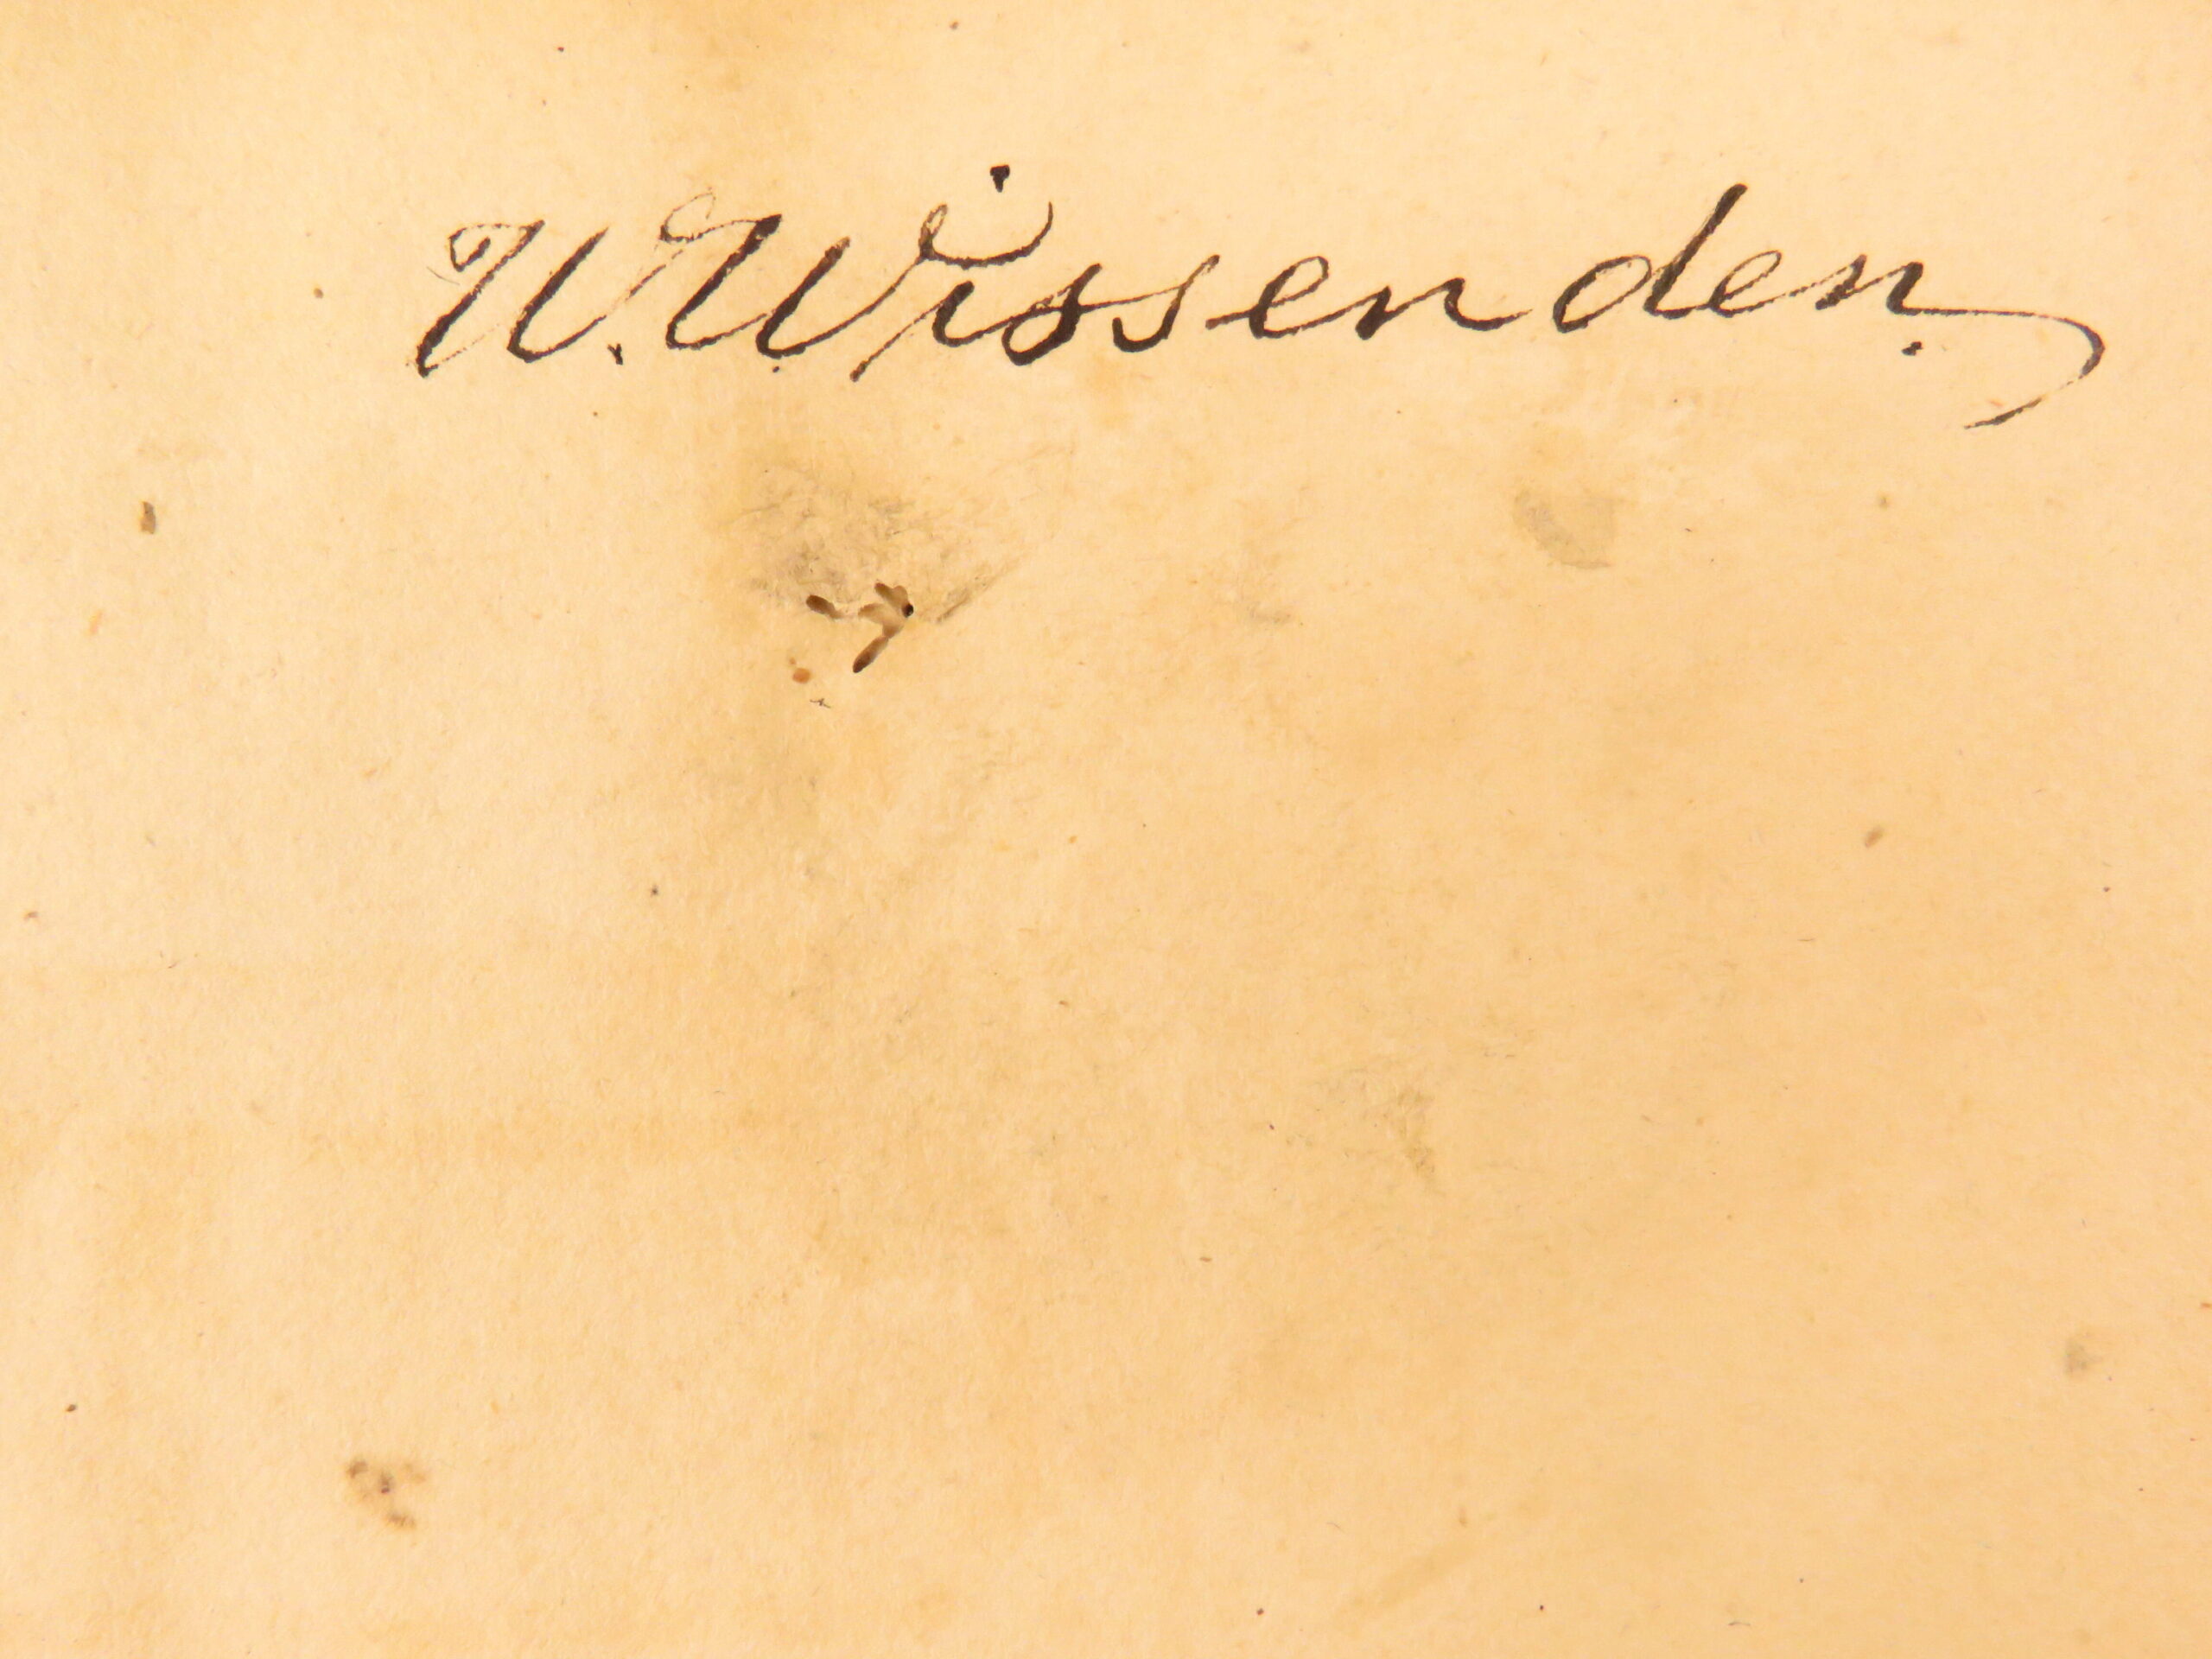 W. Wissenden.